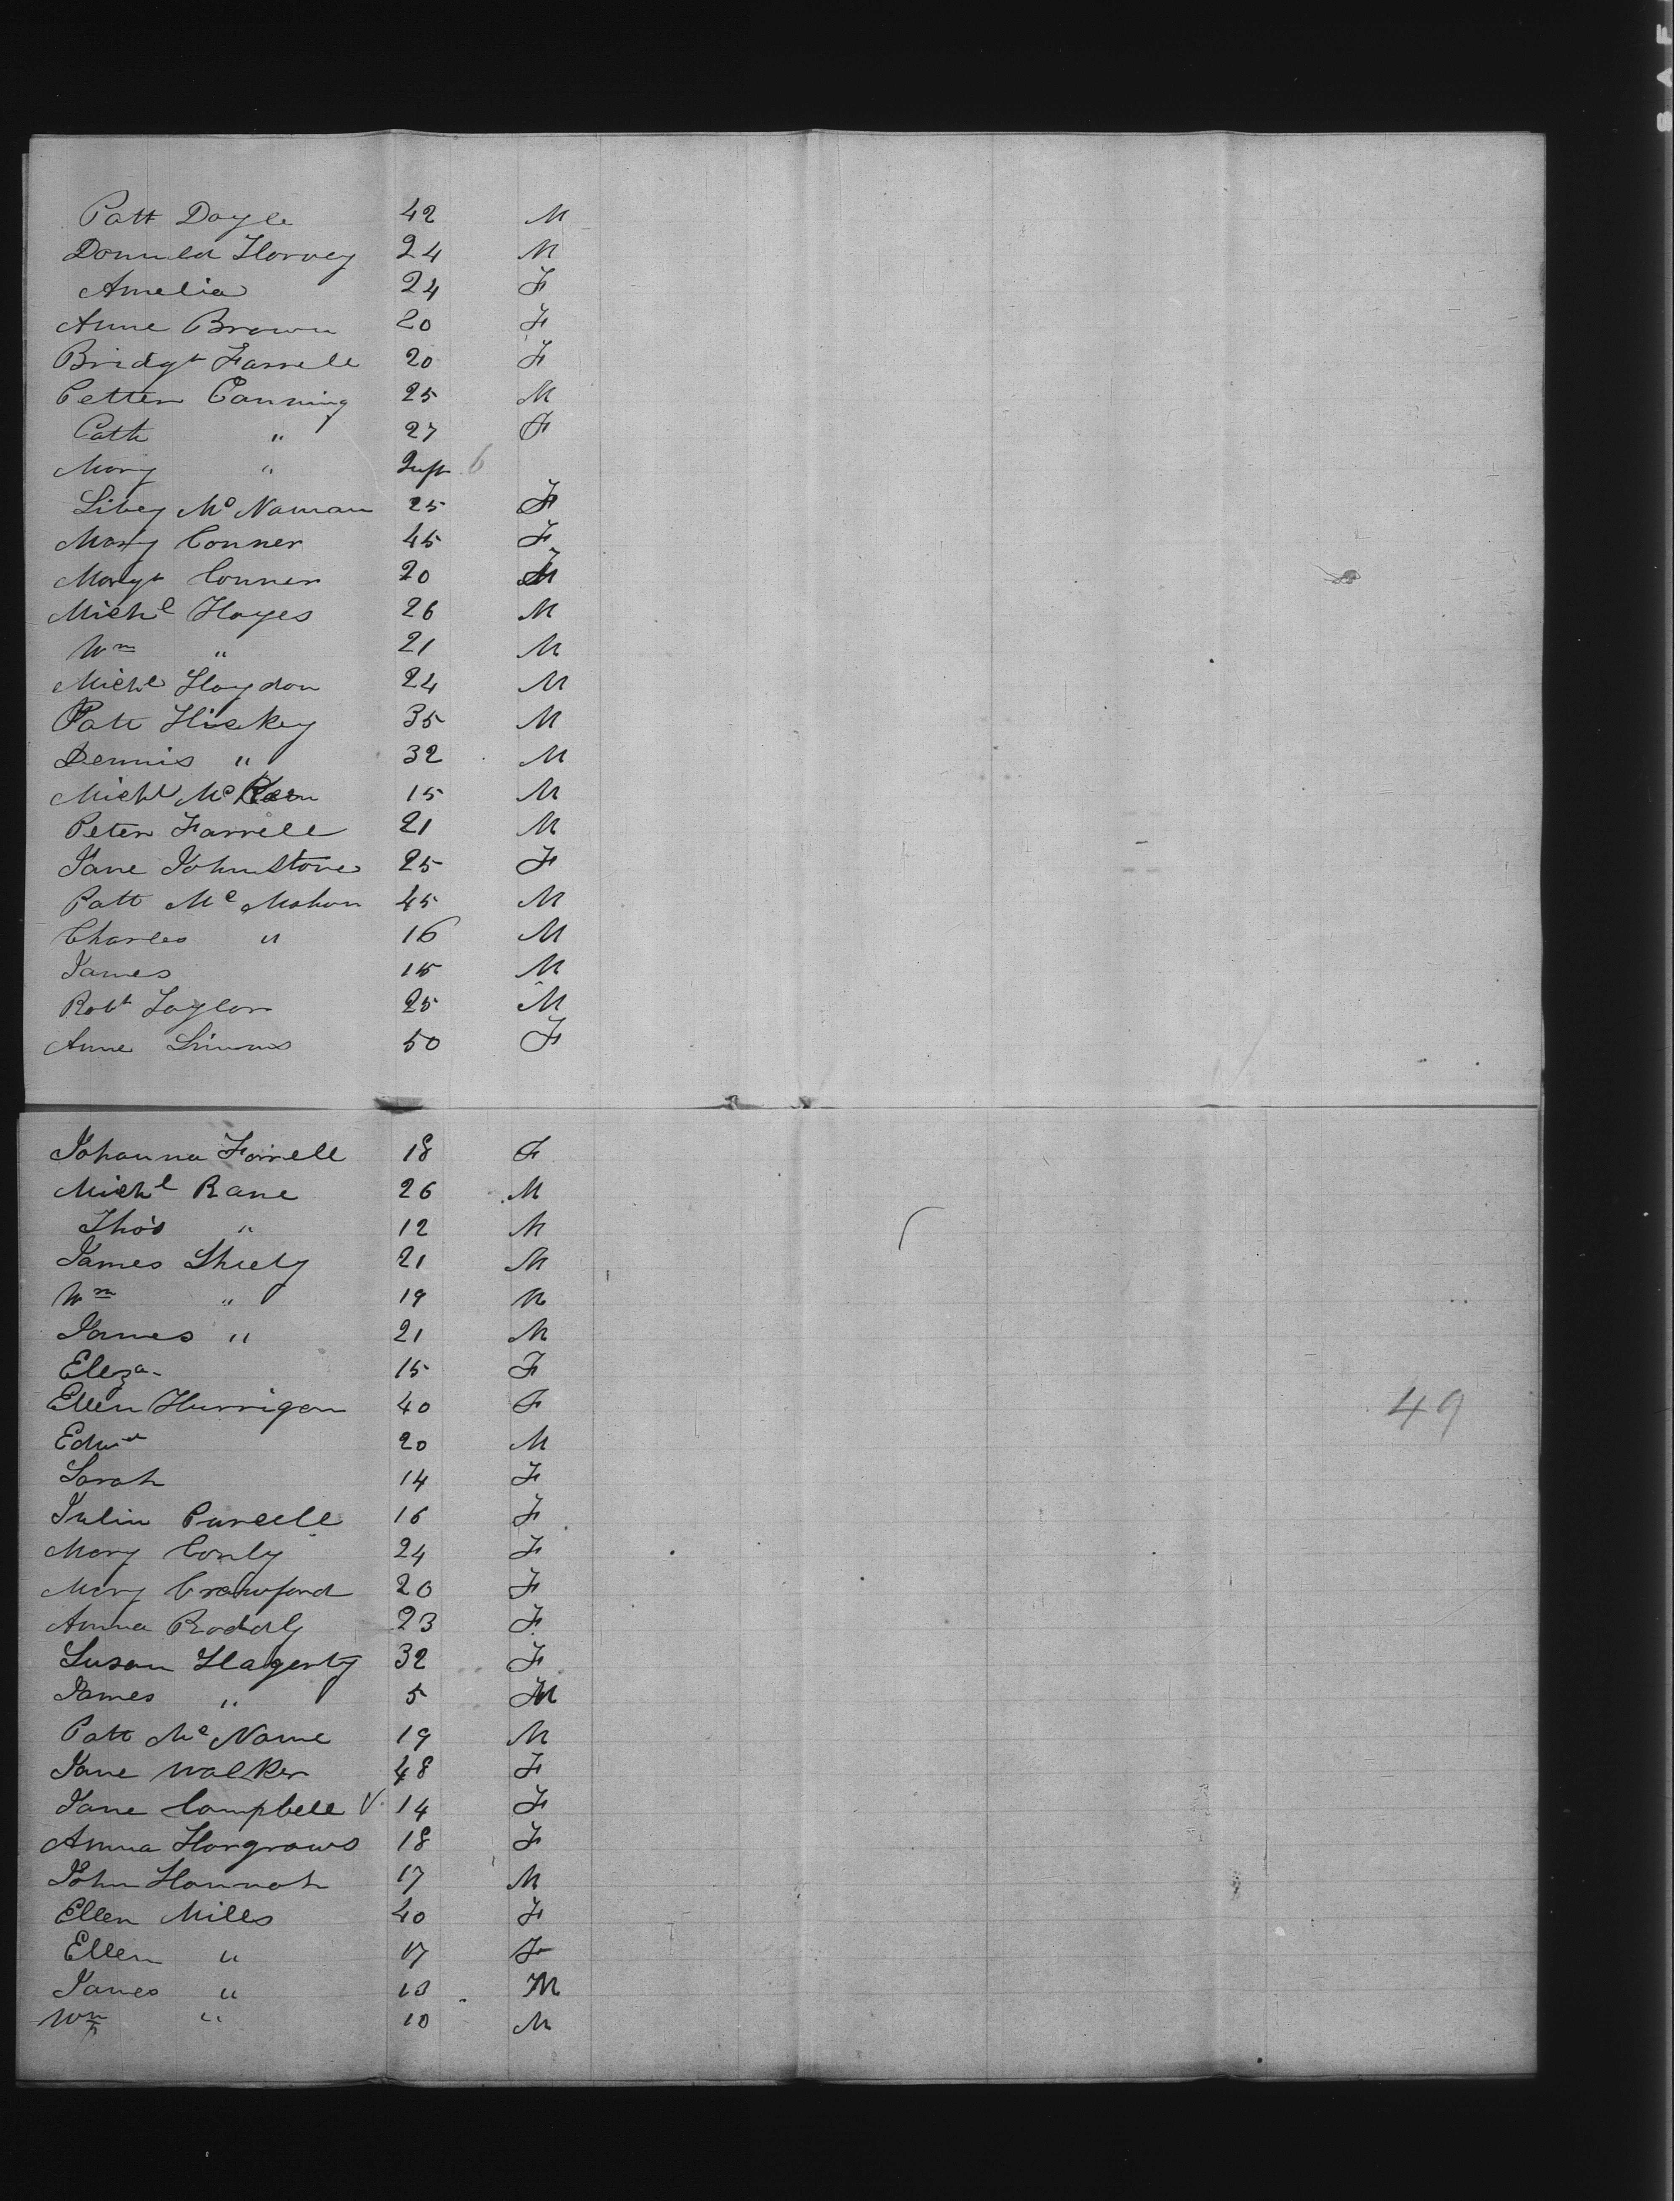 Patt Doyle 42 M
Donnald Harvey 24 M
Amelia 24 F
Anne Brown 20 F
Bridgt Farrell 20 F
Petter Canning 25 M
Cath " 27 F
Mary " Inft 6
Libey Mc Naman 25 F
Mary Conner 45 F
Margt Conner 20 F
Michl Hayes 26 M
Wm " 21 M
Michl Haydon 24 M
Patt Hickey 35 M
Dennis " 32 M
Michl Mc 15 M
Peter Farrell 21 M
Jane Johnstone 25 F
Patt Mc Mahon 45 M
Charles " 16 M
James 15 M
Robt Taylor 25 M
Anne Simms 50 F
Johanna Farrell 18 F
Michl Rane 26 M
Thos " 12 M
James Sheely 21 M
Wm " 19 M
James " 21 M
Eleza- 15 F
Ellen Hurrigan 40 F
49
Edwd 20 M
Sarah 14 F
Julia Purcell 16 F
Mary Conly 24 F
Mary Crawford 20 F
Anna Rodaly 23 F
Susan Hagerty 32 F
James " 5 M
Patt Mc Name 19 M
Jane Walker 48 F
Jane Campbell V 14 F
Anna Hargraws 18 F
John Hannah 17 M
Ellen Mills 40 F
Ellen " 17 F
James " 13 M
Wm " 10 M